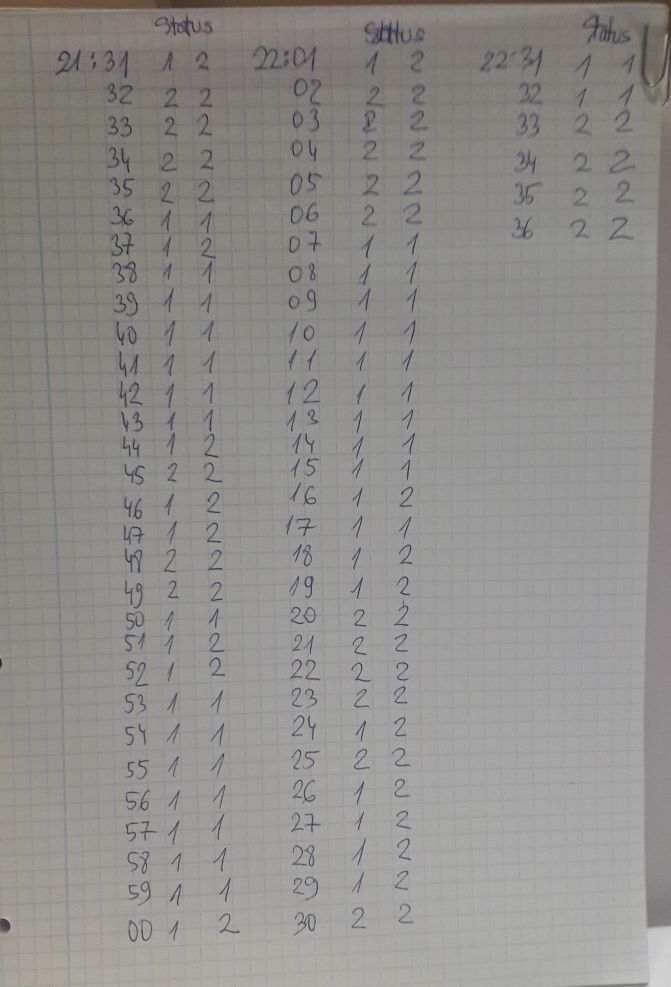 Status Status Status
21:31 1 2 22:01 1 2 22:31 1 1
32 2 2 02 2 2 32 1 1
33 2 2 03 2 2 33 2 2
34 2 2 04 2 2 34 2 2
35 2 2 05 2 2 35 2 2
36 1 1 06 2 2 36 2 2
37 1 2 07 1 1
38 1 1 08 1 1
39 1 1 09 1 1
40 1 1 10 1 1
41 1 1 11 1 1
42 1 1 12 1 1
43 1 1 13 1 1
44 1 2 14 1 1
45 2 2 15 1 1
46 1 2 16 1 2
47 1 2 17 1 1
48 2 2 18 1 2
49 2 2 19 1 2
50 1 1 20 2 2
51 1 2 21 2 2
52 1 2 22 2 2
53 1 1 23 2 2
54 1 1 24 1 2
55 1 1 25 2 2
56 1 1 26 1 2
57 1 1 27 1 2
58 1 1 28 1 2
59 1 1 29 1 2
00 1 2 30 2 2